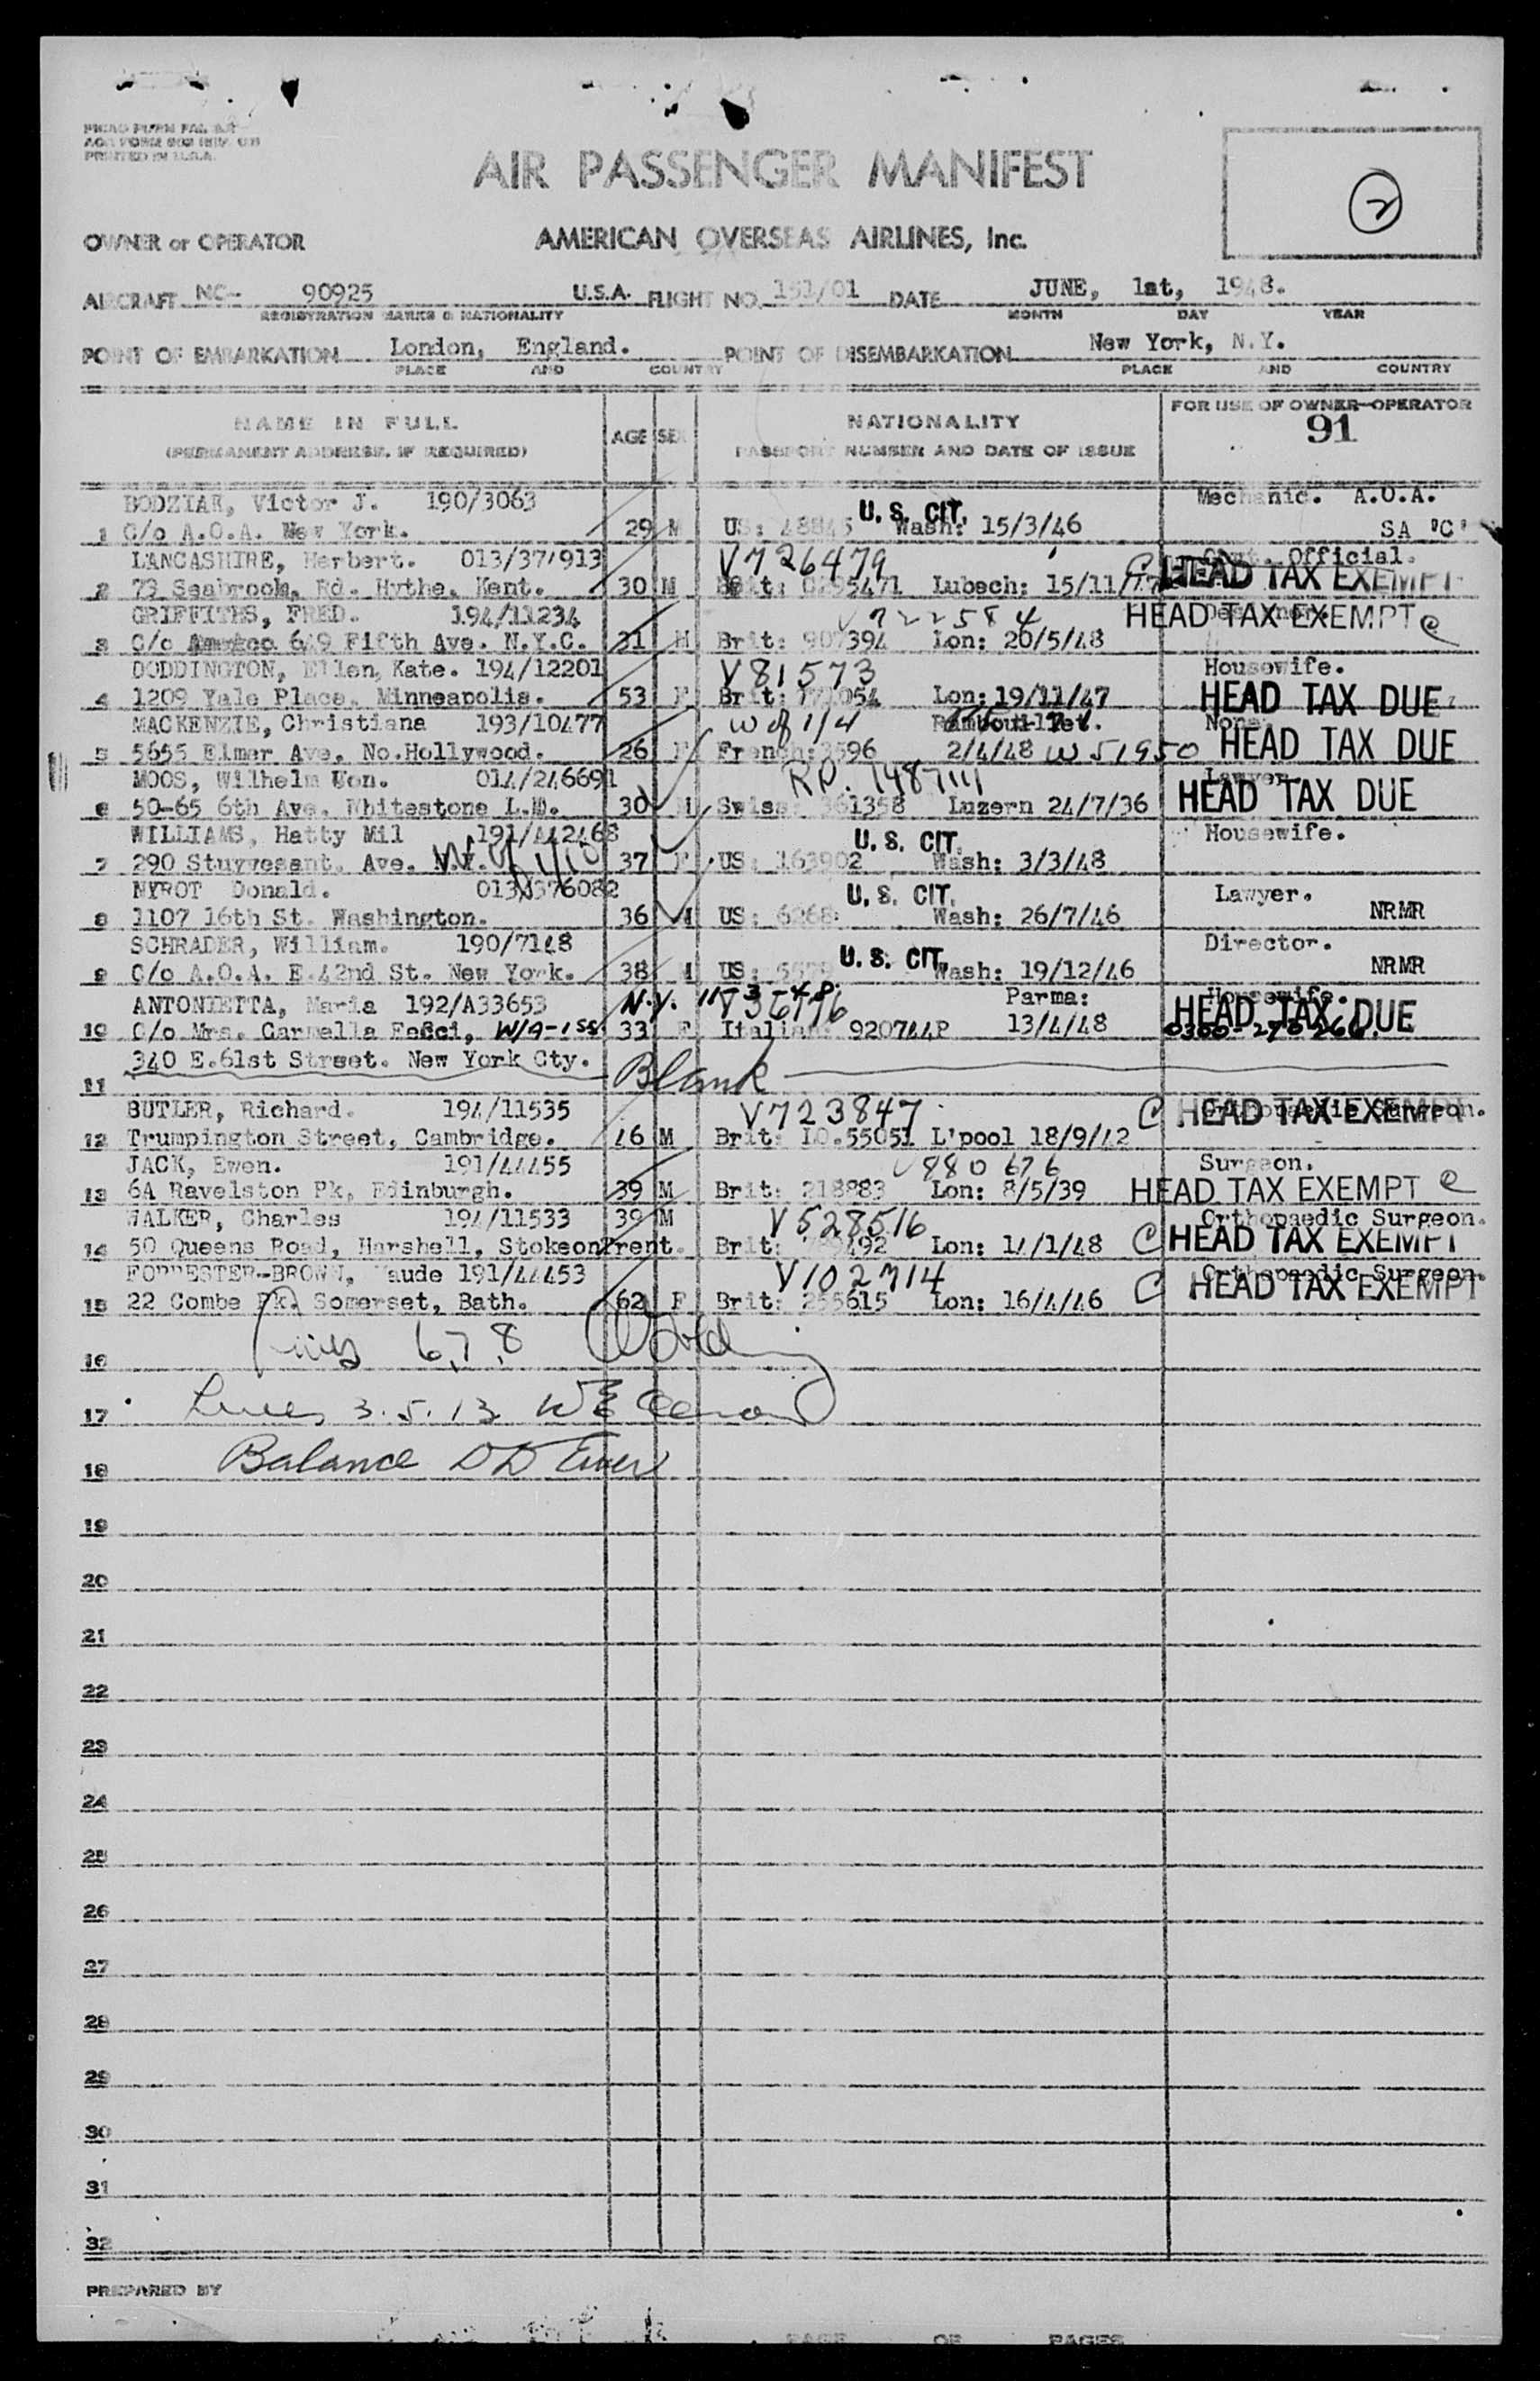 AIR PASSENGER MANIFEST
2
OWNER or OPERATOR AMERICAN OVERSEAS AIRLINES, Inc.
AIRCRAFT NC- 90925 U.S.A. FLIGHT NO. 151/01 DATE JUNE, 1st, 1948.
REGISTRATION MARKS & NATIONALITY MONTH DAY YEAR
POINT OF EMBARKATION London, England. POINT OF DISEMBARKATION New York, N.Y.
PLACE AND COUNTRY PLACE AND COUNTRY
NAME IN FULL AGE SEX NATIONALITY FOR USE OF OWNER-OPERATOR
(PERMANENT ADDRESS, IF REQUIRED) PASSPORT NUMBER AND DATE OF ISSUE 91
BODZIAK, Victor J. 190/3063 U.S. CIT. Mechanic. A.O.A.
1 C/o A.O.A. New York. 29 M US: 48845 Wash: 15/3/46 SA "C"
LANCASHIRE, Herbert. 013/374913 V726479 Govt. Official.
2 73 Seabrook, Rd. Hythe, Kent. 30 M Brit: 0295471 Lubech: 15/11/47 C HEAD TAX EXEMPT
GRIFFITHS, FRED. 194/11234 V722584 HEAD TAX EXEMPT C
3 C/o 649 Fifth Ave. N.Y.C. 31 M Brit: 907394 Lon: 20/5/48
DODDINGTON, Ellen, Kate. 194/12201 V81573 Housewife.
4 1209 Yale Place, Minneapolis. 53 F Brit: 171054 Lon: 19/11/47 HEAD TAX DUE
MACKENZIE, Christiana 193/10477 W of 1/4 Rambouillet. None.
5 5655 Elmer Ave, No.Hollywood. 26 F French: 3596 2/4/48 W51950 HEAD TAX DUE
MOOS, Wilhelm Von. 014/246691 R.P. 1487111 Lawyer
6 50-65 6th Ave. Whitestone L.I. 30 M Swiss 361358 Luzern 24/7/36 HEAD TAX DUE
WILLIAMS, Hatty Mil 191/A42468 U.S. CIT. Housewife.
7 290 Stuyvesant, Ave. N.Y. 37 F US: 163902 Wash: 3/3/48
NYROT Donald. 013/376082 U.S. CIT. Lawyer.
8 1107 16th St. Washington. 36 M US: 6268 Wash: 26/7/46 NRMR
SCHRADER, William. 190/7148 U.S. CIT. Director.
9 C/o A.O.A. E.42nd St. New York. 38 M US: Wash: 19/12/46 NRMR
ANTONIETTA, Maria 192/A33653 N.Y. V36776 Parma: Housewife.
10 C/o Mrs. Carmella Fasci, W/A-1 SS 33 F Italian: 920744P 13/4/48 HEAD TAX DUE 0300-270266.
340 E.61st Street. New York Cty.
11 Blank
BUTLER, Richard. 194/11535 V723847 Orthopaedic Surgeon. C HEAD TAX EXEMPT
12 Trumpington Street, Cambridge. 46 M Brit: LO.55051 L'pool 18/9/42
JACK, Ewen. 191/44455 V880676 Surgeon.
13 6A Ravelston Pk, Edinburgh. 39 M Brit: 218983 Lon: 8/5/39 HEAD TAX EXEMPT C
WALKER, Charles 194/11533 39 M V528516 Orthopaedic Surgeon.
14 50 Queens Road, Harshell, StokeonTrent. Brit: Lon: 14/1/48 C HEAD TAX EXEMPT
FORRESTER-BROWN, Maude 191/44453 V102714 Orthopaedic Surgeon.
15 22 Combe Pk. Somerset, Bath. 62 F Brit: 255615 Lon: 16/4/46 C HEAD TAX EXEMPT
16 Lines 6,7,8
17 Lines 3.5.13
18 Balance
19
20
21
22
23
24
25
26
27
28
29
30
31
32
PREPARED BY
PAGE OF PAGES